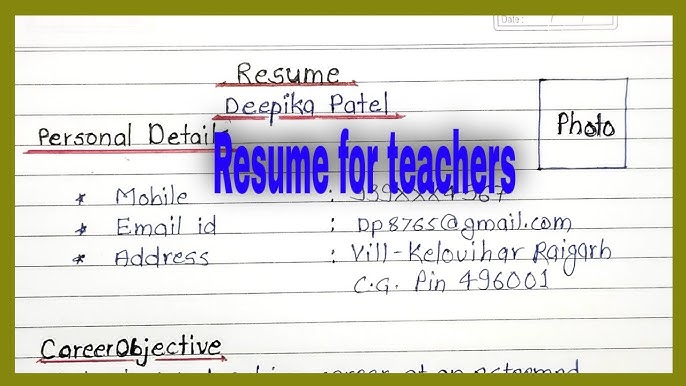 Date : / /
Resume
Deepika Patel
Personal Detail
Photo
Resume for teachers
* Mobile : 939XXX4567
* Email id : Dp8765@gmail.com
* Address : Vill-Kelovihar Raigarh
C.G. Pin 496001
Career Objective